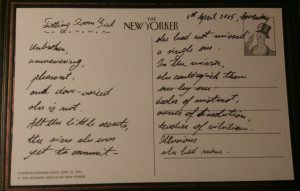 Fitting Room Girl
Unbroken,
unwavering,
pleasant,
and dove-voiced
she is not.
All the little scents,
the sins she was
yet to commit —
COVER BY LEONARD DOVE, JUNE 1936
& THE NEW YORKER
THE
NEW YORKER
1st April 2015,
she had not missed
a single one.
In the mirror,
she could them
one by one:
of mistrust,
of desolation,
of violation.
Illusions
she had none.